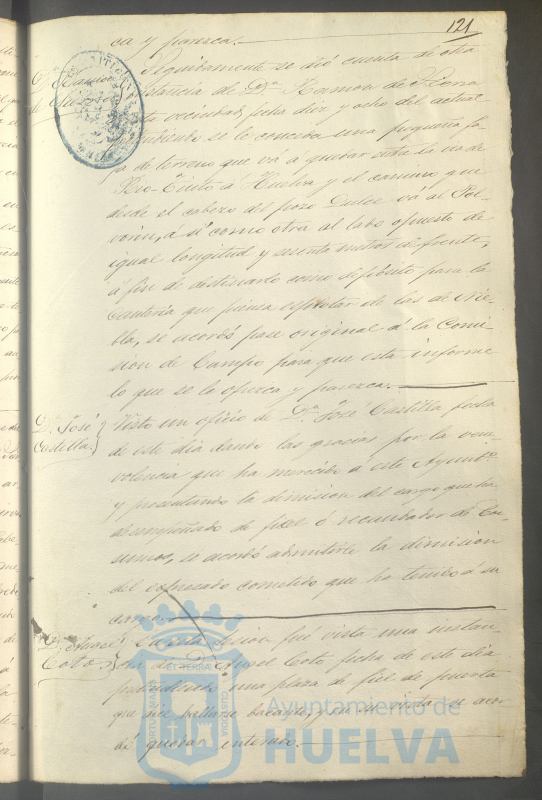 121
ca y parezca.
Seguidamente se dió cuenta de otra
instancia de Dn. Ramon de
de esta vecindad, fecha diez y ocho del actual
pidiendo se le conceda una pequeña fa-
ja de terreno que vá a quedar entre la via de
Rio-Tinto á Huelva y el camino que
desde el cabezo del pozo Dulce vá al Pol-
vorin, á si como otra al lado opuesto de
igual longitud y metros de frente,
á fin de destinarlo como depósito para la
Cantería que piensa esplotar de las de Nie-
bla, se acordó pase original á la Comi-
sion de Campo para que esta informe
lo que se la ofrezca y parezca.
Dn. José
Castilla
Visto un oficio de Dn. José Castilla fecha
de este dia dando las gracias por la bene-
volencia que ha merecido a este Ayuntto.
y presentando la dimision del cargo que ha
desempeñado de fiel ó recaudador de Con-
sumos, se acordó admitirle la dimision
del espresado cometido que ha tenido á su
cargo.
Coto
fué vista una instan-
cia de Dn. Angel Coto fecha de este dia
pretendiendo una plaza de fiel de puerta
que dice hallarse bacante, y en su vista se acor-
dó quedar enterado.
Ayuntamiento de
HUELVA